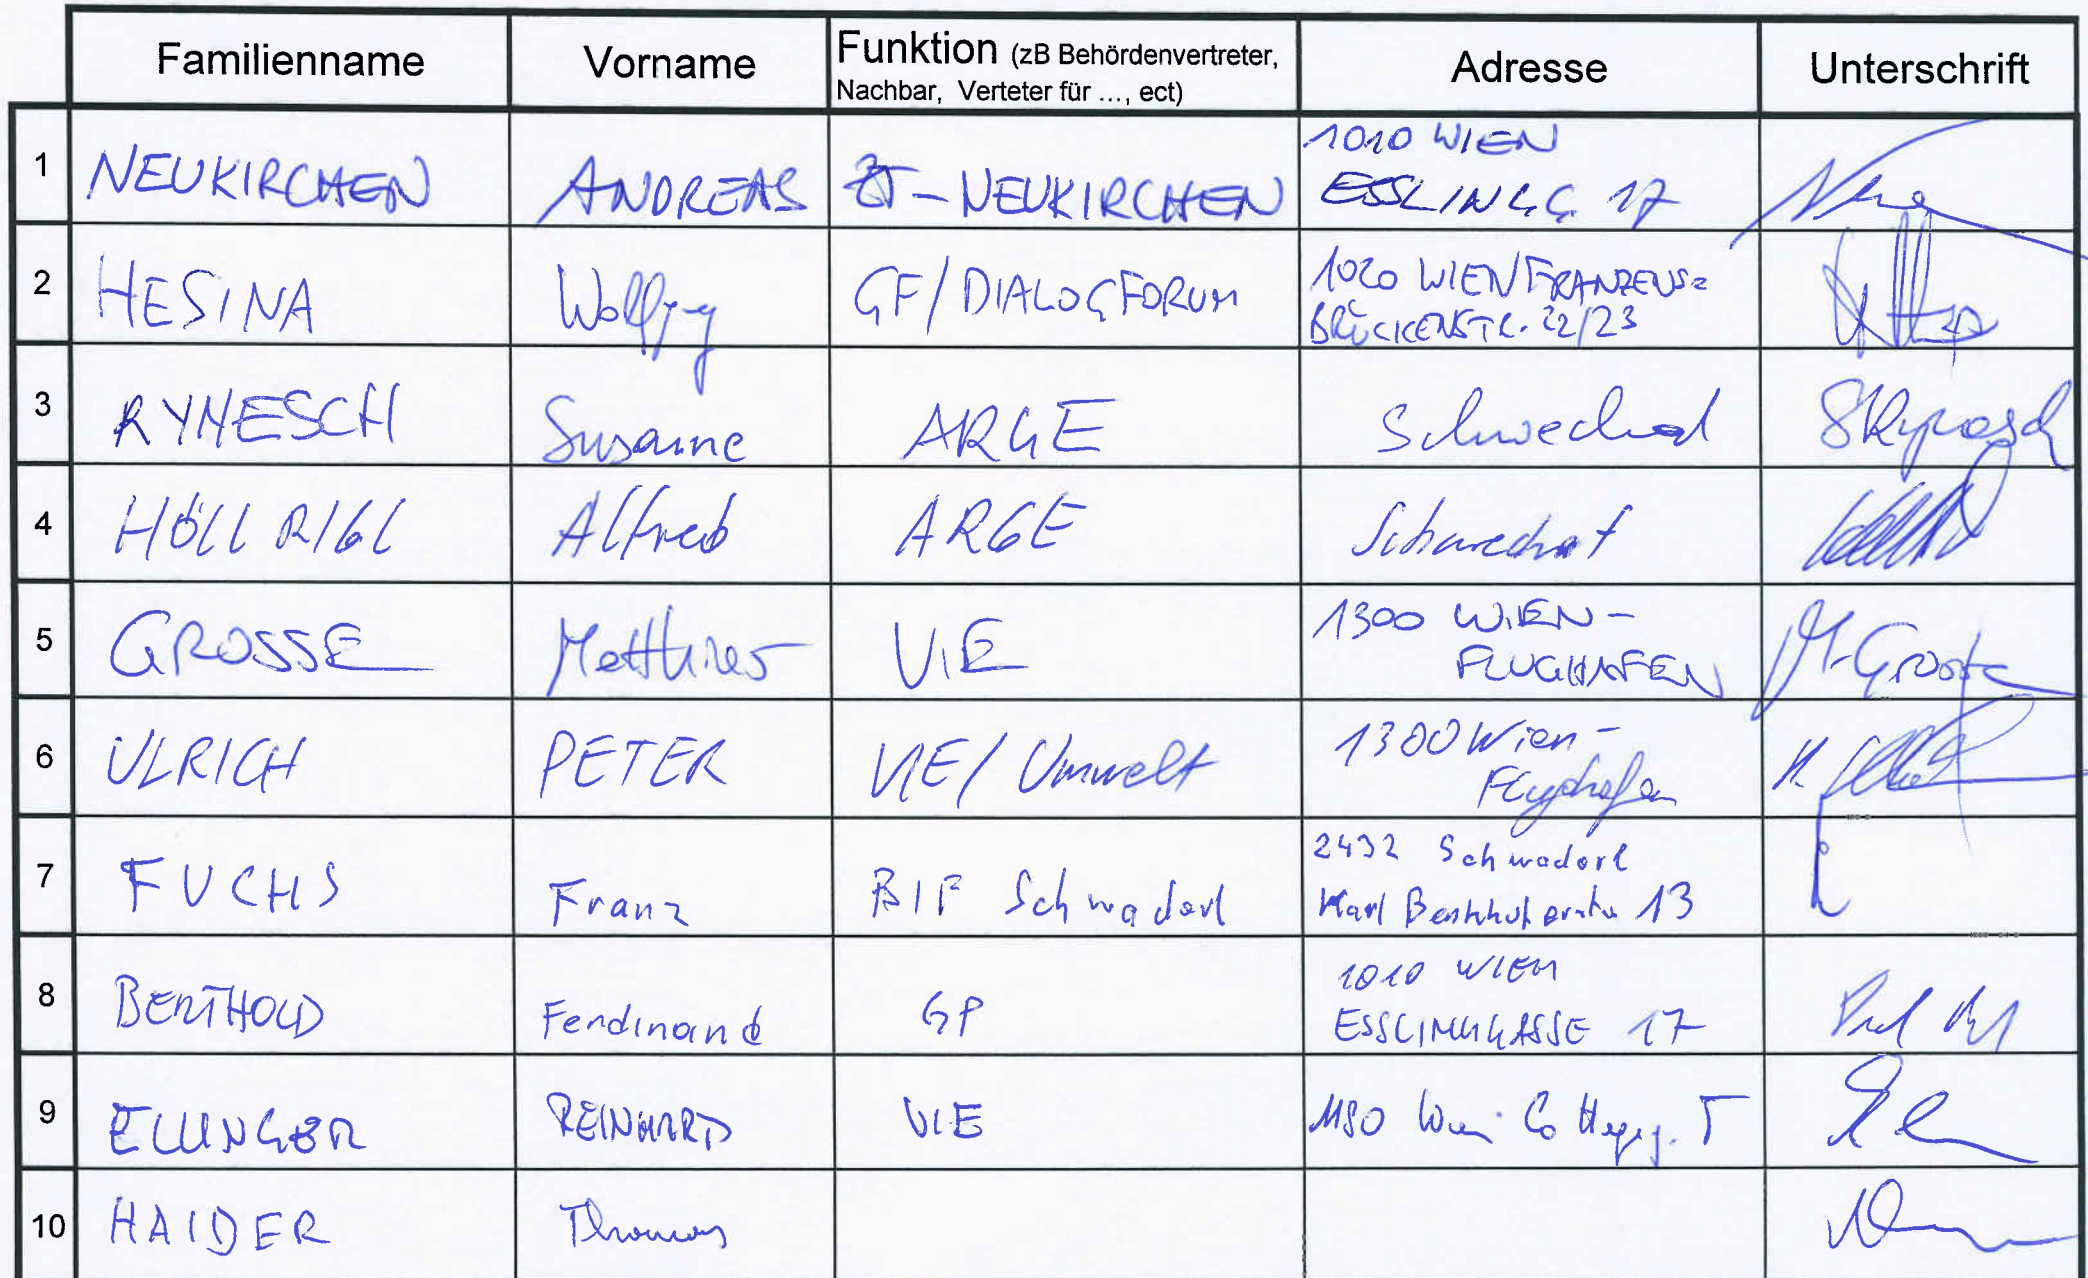 Familienname Vorname Funktion (zB Behördenvertreter, Nachbar, Verteter für ..., ect) Adresse Unterschrift
1 NEUKIRCHEN ANDREAS ZT-NEUKIRCHEN 1010 WIEN
ESSLINGG. 17
2 HESINA Wolfgang GF/DIALOGFORUM 1020 WIEN/FRANZENS=
BRÜCKENSTR. 22/23
3 RYNESCH Susanne ARGE Schwechat
4 HÖLLRIGL Alfred ARGE Schwechat
5 GROSSE Matthias VIE 1300 WIEN-
FLUGHAFEN M. Grosse
6 ULRICH PETER VIE/Umwelt 1300 Wien-
Flughafen
7 FUCHS Franz BIF Schwadorf 2432 Schwadorf
Karl 13
8 BERTHOLD Ferdinand GP 1010 WIEN
ESSLINGGASSE 17
9 ELLINGER REINHARD VIE 1180 Wien
10 HAIDER Thomas